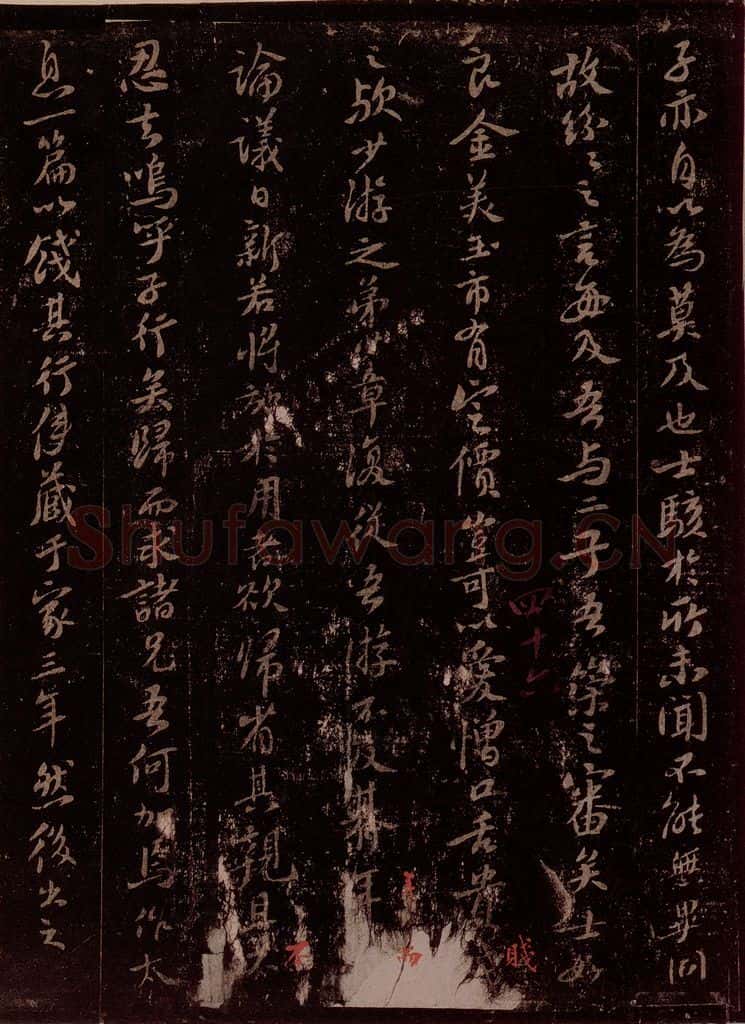 子亦自以為莫及也士駭於所未聞不能無異同
故紛〻之言每及吾与二子吾策之審矣士如
良金美玉市有定價豈可以愛憎口舌貴賤
之歟少游之弟少章復從吾游不及朞年而
論議日新若將施於用者欲歸省其親且不
忍去嗚呼子行矣歸而求諸兄吾何加焉作太
息一篇以餞其行使藏于家三年然後出之
四十六
Shufawang.CN